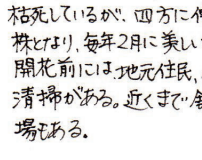 枯死しているが、四方に
株となり、毎年2月に美しい
開花前には、地元住民、
清掃がある。近くまで
場もある。